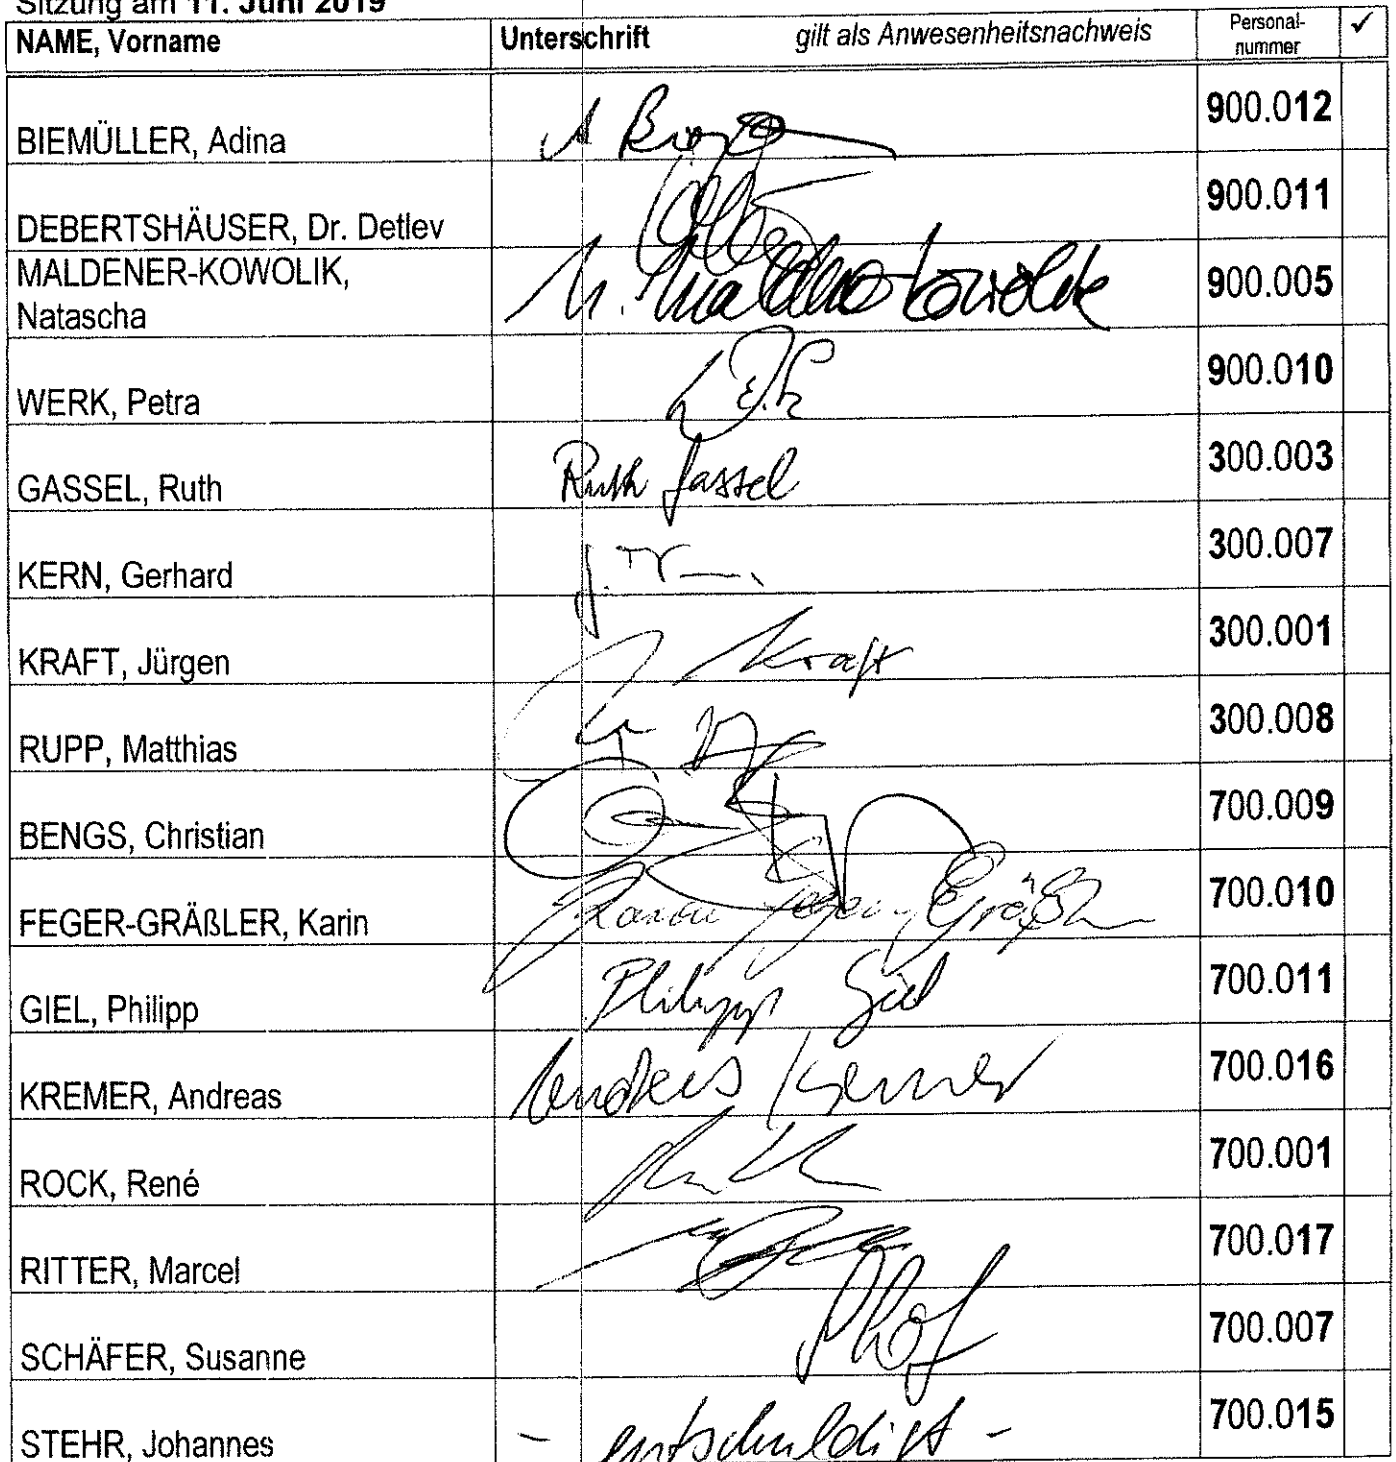 Sitzung am 11. Juni 2019
NAME, Vorname Unterschrift gilt als Anwesenheitsnachweis Personal-
nummer ✓
BIEMÜLLER, Adina 900.012
DEBERTSHÄUSER, Dr. Detlev 900.011
MALDENER-KOWOLIK,
Natascha N. Maldener-Kowolik 900.005
WERK, Petra 900.010
GASSEL, Ruth Ruth Gassel 300.003
KERN, Gerhard 300.007
KRAFT, Jürgen Kraft 300.001
RUPP, Matthias 300.008
BENGS, Christian 700.009
FEGER-GRÄßLER, Karin Karin Feger-Gräßler 700.010
GIEL, Philipp Philipp Giel 700.011
KREMER, Andreas Andreas Kremer 700.016
ROCK, René 700.001
RITTER, Marcel 700.017
SCHÄFER, Susanne 700.007
STEHR, Johannes - entschuldigt - 700.015